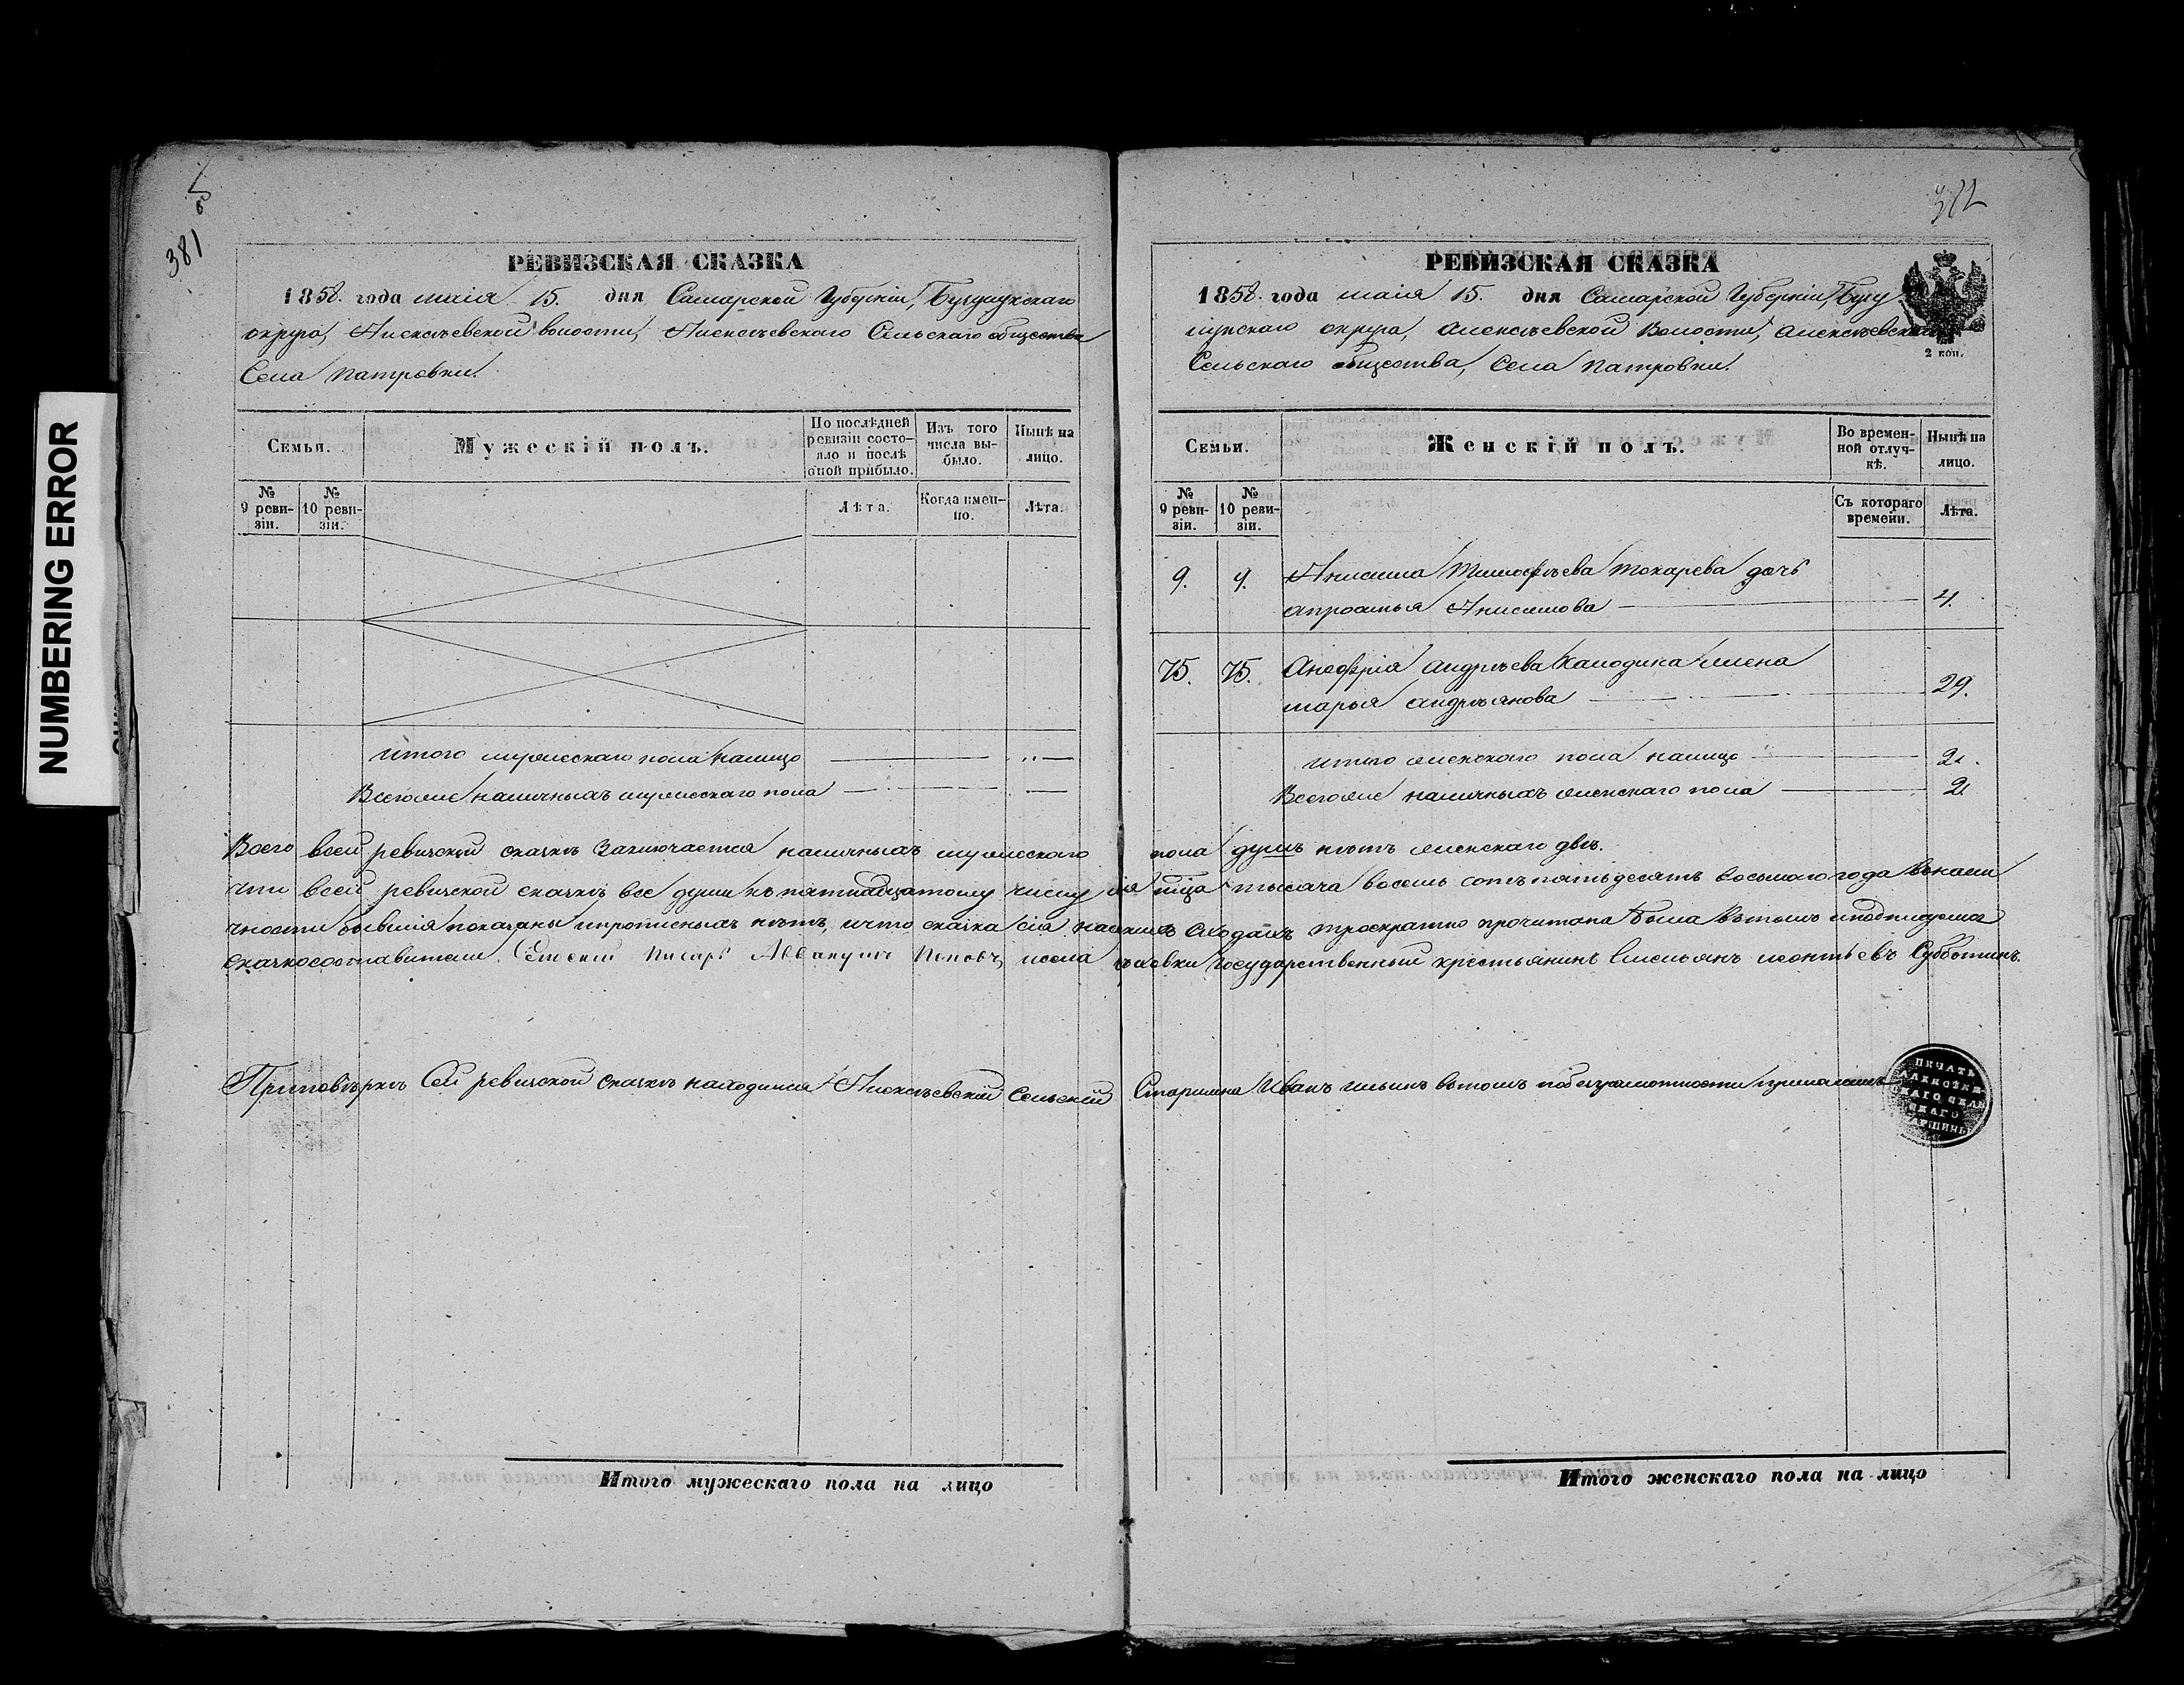 NUMBERING ERROR
381
РЕВИЗСКАЯ СКАЗКА
1858. года маія 15. дня Самарской Губерніи, Бузулукскаго
округа, Алексѣевской волости, Алексѣевскаго Сельскаго общества
Села Патровки.
Семьи.
Мужескій полъ.
По послѣдней ревизіи состояло и послѣ оной прибыло.
Изъ того числа выбыло.
Нынѣ на лицо.
№ 9 ревизіи.
№ 10 ревизіи.
Лѣта.
Когда именно.
Лѣта.
Итого мужескаго пола налицо
Всегоже наличныхъ мужескаго пола
382
РЕВИЗСКАЯ СКАЗКА
1858. года маія 15. дня Самарской Губерніи, Бузу
лукскаго округа, Алексѣевской Волости, Алексѣевскаго
Сельскаго общества, Села Патровки.
2 коп.
Семьи.
Женскій полъ.
Во временной отлучкѣ.
Нынѣ на лицо.
№ 9 ревизіи.
№ 10 ревизіи.
Съ котораго времени.
Лѣта.
9. 9. Анисима Тимофѣева Токарева дочь
Апросинья Анисимова 4.
75. 75. Андрѣева жена
Марья Андрѣянова 29.
Итого женскаго пола налицо 2.
Всегоже наличныхъ женскаго пола 2
Всего всей ревизской сказкѣ заключается наличныхъ мужескаго пола душъ нѣтъ женскаго двѣ.
Что всей ревизской сказкѣ все души къ пятнадцатому числу маія тысяча восемь сотъ пятьдесятъ восьмаго года внали
чности бывшія показаны ипрописныхъ нѣтъ, ичто сказка сія намірскихъ сходахъ троекратно прочитана была вътомъ иподписуемся
сказкосоставители. Сельскій Писарь Аввакумъ Поповъ, исела Государственный крестьянинъ Емельянъ Леонтьевъ Субботинъ.
Приповѣркѣ Сей ревизской сказкѣ находился Алексѣевскій Сельскій Старшина Иванъ Ильинъ вътомъ побезграмотности
ПЕЧАТЬ
АЛЕКСѢЕВ
СКАГО СЕЛЬ
СКАГО
СТАРШИНЫ
Итого мужескаго пола на лицо
Итого женскаго пола на лицо